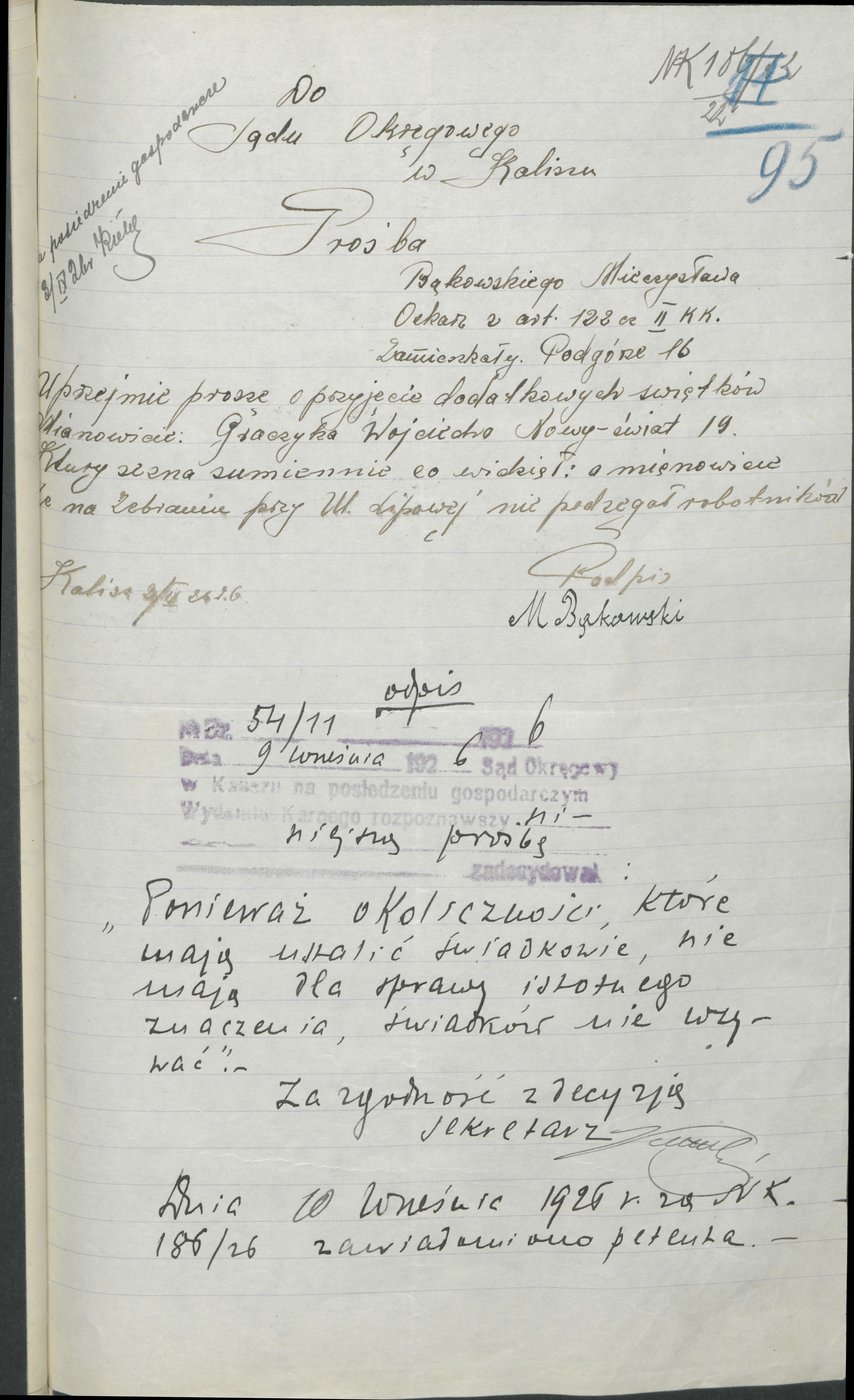 NK 186/
22
95
posiedzenie gospodarcze
Do
Sądu Okręgowego
w Kaliszu
Prośba
Bąkowskiego Mieczysława
Oskar z art. 122 cz II KK.
Zamieszkały. Podgórze 16
Uprzejmie prosze o przyjęcie dodatkowych swiętków
Mianowicie: Graczyka Wojciecha Nowy-świat 19.
Ktury sezna sumiennie co widział: a mięnowicie
że na Zebraniu przy Ul. Lipowej nie podzegał robotników
Kalisz
Podpis
M Bąkowski
odpis
№ Dz. 54/11 192 6
Dnia 9 września 192 6 Sąd Okręgowy
w Kaliszu na posiedzeniu gospodarczym
Wydziału Karnego rozpoznawszy ni-
niejszą prośbę
zadecydował :
„Ponieważ okoliczności, które
mają ustalić świadkowie, nie
mają dla sprawy istotnego
znaczenia, świadków nie wzy-
wać".-
Za zgodność z decyzją
sekretarz
Dnia 10 września 1926 r. za N K.
186/26 zawiadomiono petenta. -